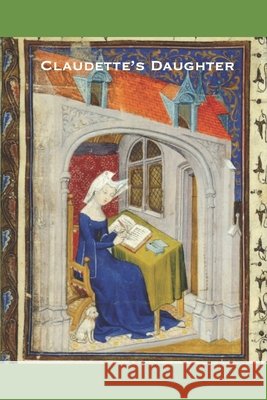 Claudette's Daughter